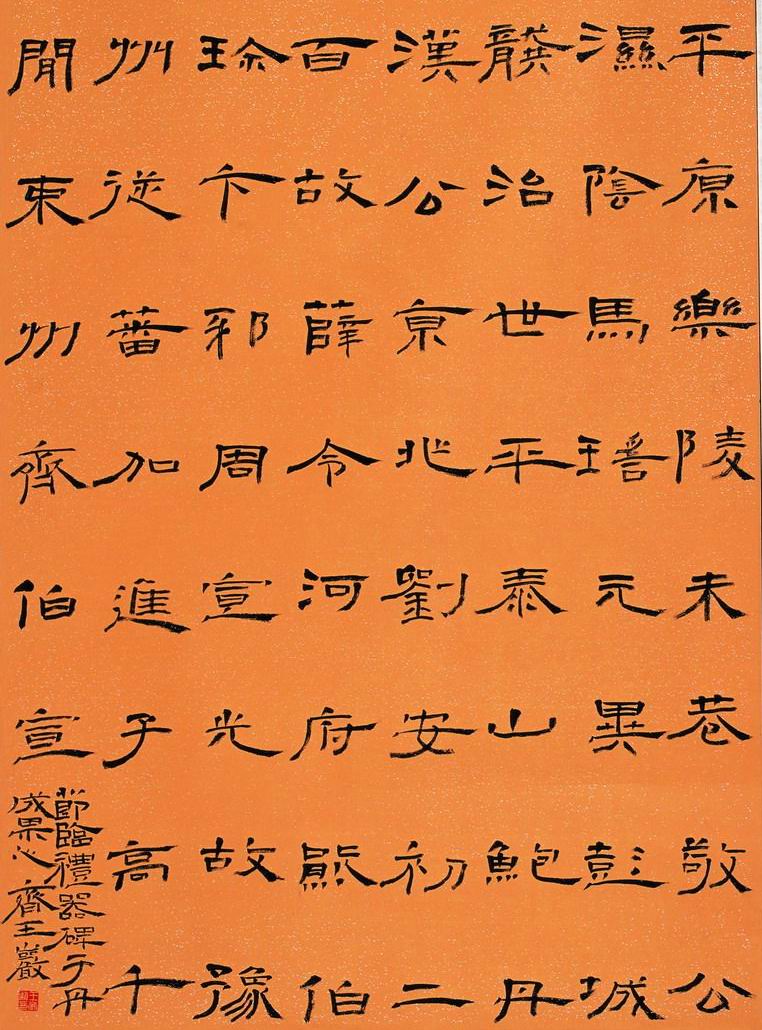 平原樂陵朱恭敬公
濕陰馬瑤元冀彭城
龔治世平泰山鮑丹
漢公京兆劉安初二
百故薛令河府熊伯
珍下邳周宣光故豫
州從蕃加進子高千
聞東州齊伯宣
節臨禮器碑于丹
成果心齋王巖